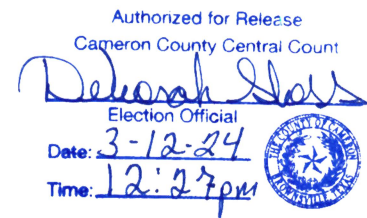 Authorized for Release
Cameron County Central Count
Deborah
Election Official
Date: 3-12-24
Time: 12:27pm
THE COUNTY OF CAMERON
BROWNSVILLE, TEXAS